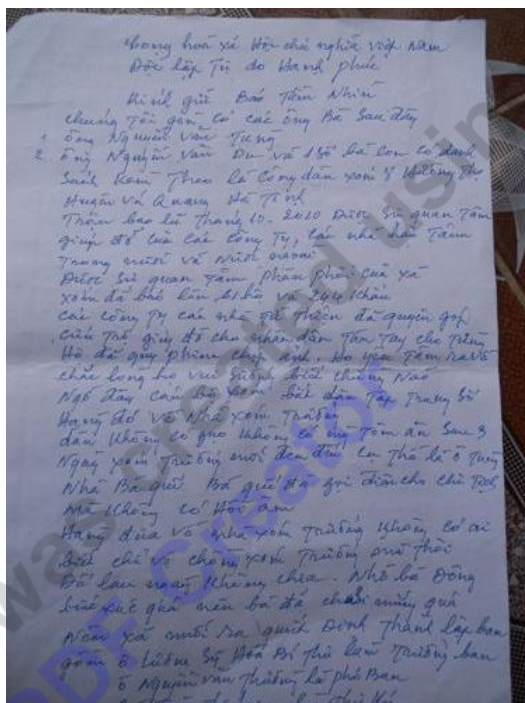 Cộng hoà xã Hội chủ nghĩa việt Nam
Độc lập Tự do Hạnh phúc
Kính gửi Báo Tầm Nhìn
chúng Tôi gồm có các ông Bà Sau đây
1. ông Nguyễn văn Tung
2. ông Nguyễn văn Du và 1 số bà con có danh
Sách Kèm Theo là công dân xóm 3 Hương Thọ
Huyện Vũ Quang Hà Tĩnh
Trận bão lũ Tháng 10-2010 Được Sự quan Tâm
giúp đỡ của các công Ty, các nhà hảo Tâm
Trong nước và Nước ngoài
Được Sự quan Tâm phân phối của xã
xóm đã báo lên hộ và 244 khẩu
các công Ty các nhà từ thiện đã quyên góp
cứu Trợ giúp đỡ cho nhân dân Tận Tay cho từng
Hộ đã quay phim chụp ảnh. Họ yên Tâm ra về
chắc lòng họ vui Sướng biết chừng Nào
Ngờ đâu cán bộ xóm bắt dân Tập Trung Số
Hàng đó về Nhà xóm Trưởng
dân Không có gạo Không có mỳ Tôm ăn Sau 3
Ngày xóm Trưởng mới đem đến
Nhà Bà Bà đã gọi điện cho chủ
Mà Không có Hồi âm
Hàng đưa về nhà xóm Trưởng Không có ai
biết chỉ vợ chồng xóm Trưởng mà Thôi
Đã lâu ngày Không chia. Nhà bà Đông
bức xúc quá nên bà đã chửi mắng quá
Nên xã mới ra quyết Định Thành lập ban
gồm ô Lương Sỹ Hoà Bí Thư làm Trưởng ban
ô Nguyễn văn Thường là phó Ban
was created using
PDF Creator